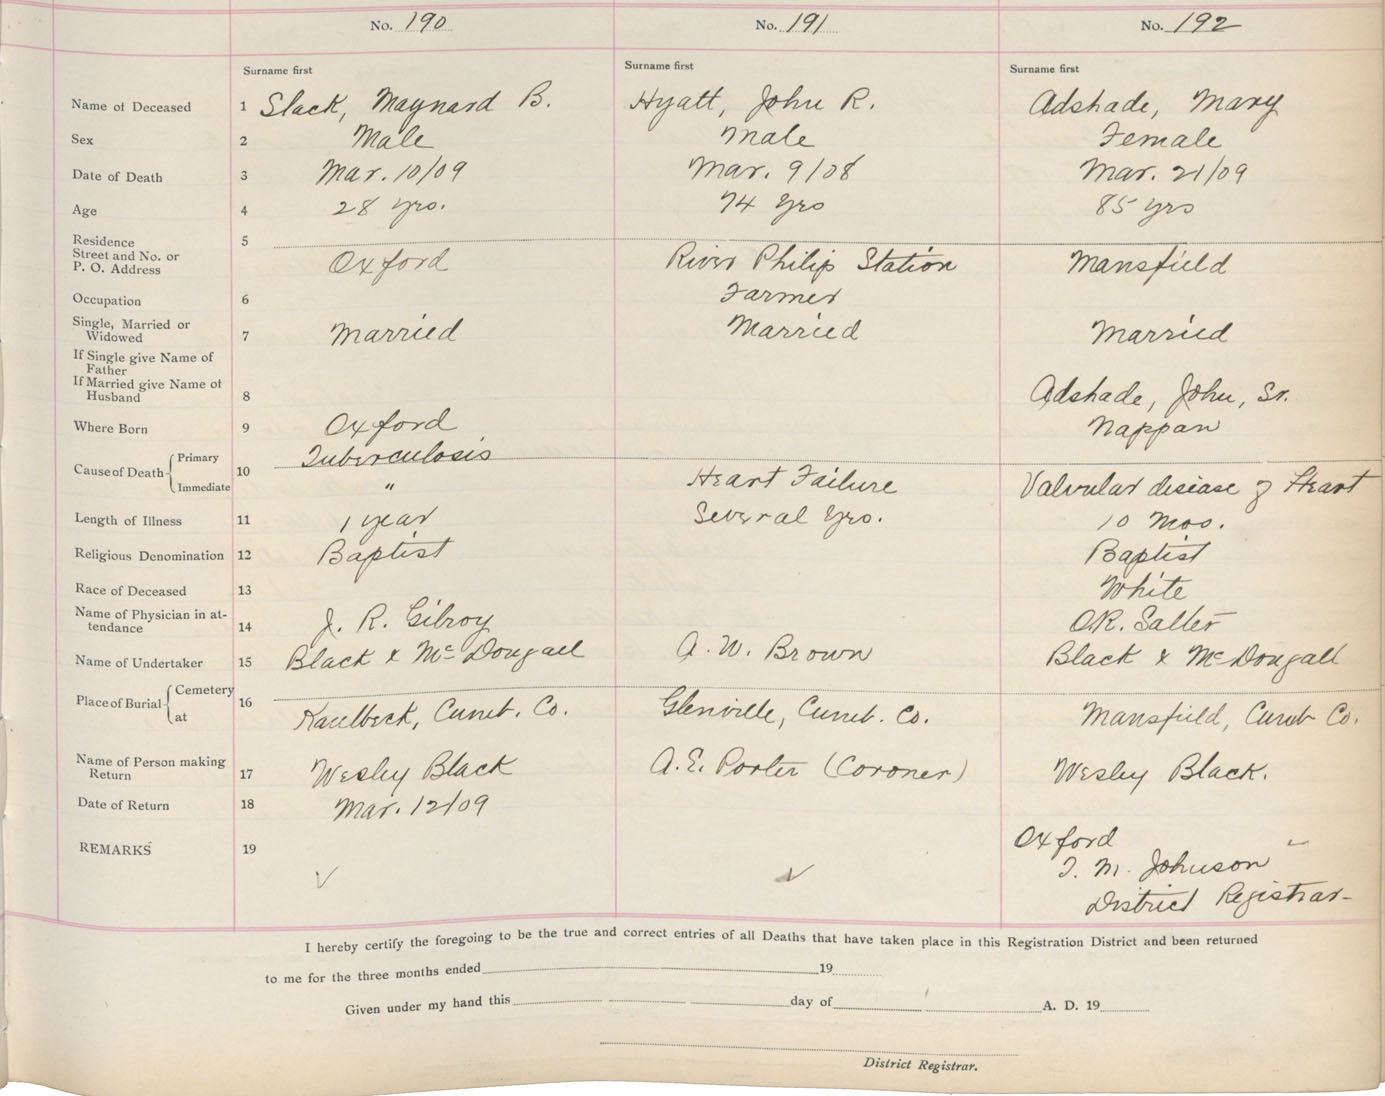 No. 190 No. 191 No. 192
Surname first Surname first Surname first
Name of Deceased 1 Slack, Maynard B. Hyatt, John R. Adshade, Mary
Sex 2 Male Male Female
Date of Death 3 Mar. 10/09 Mar. 9/08 Mar. 21/09
Age 4 28 yrs. 74 yrs 85 yrs
Residence 5
Street and No. or
P. O. Address Oxford River Philip Station Mansfield
Occupation 6 Farmer
Single, Married or
Widowed 7 Married Married Married
If Single give Name of
Father
If Married give Name of
Husband 8 Adshade, John, Sr.
Where Born 9 Oxford Nappan
Cause of Death { Primary 10 Tuberculosis
Immediate " Heart Failure Valvular disease of Heart
Length of Illness 11 1 year Several Yrs. 10 Mos.
Religious Denomination 12 Baptist Baptist
Race of Deceased 13 White
Name of Physician in at-
tendance 14 J. R. Gilroy C.R. Salter
Name of Undertaker 15 Black & McDougall A. W. Brown Black & McDougall
Place of Burial { Cemetery 16
at Kaulbeck, Cumb. Co. Glenville, Cumb. Co. Mansfield, Cumb Co.
Name of Person making
Return 17 Wesley Black A. E. Porter (Coroner) Wesley Black.
Date of Return 18 Mar. 12/09
REMARKS 19 Oxford
T. M. Johnson
District Registrar
I hereby certify the foregoing to be the true and correct entries of all Deaths that have taken place in this Registration District and been returned
to me for the three months ended 19
Given under my hand this day of A. D. 19
District Registrar.